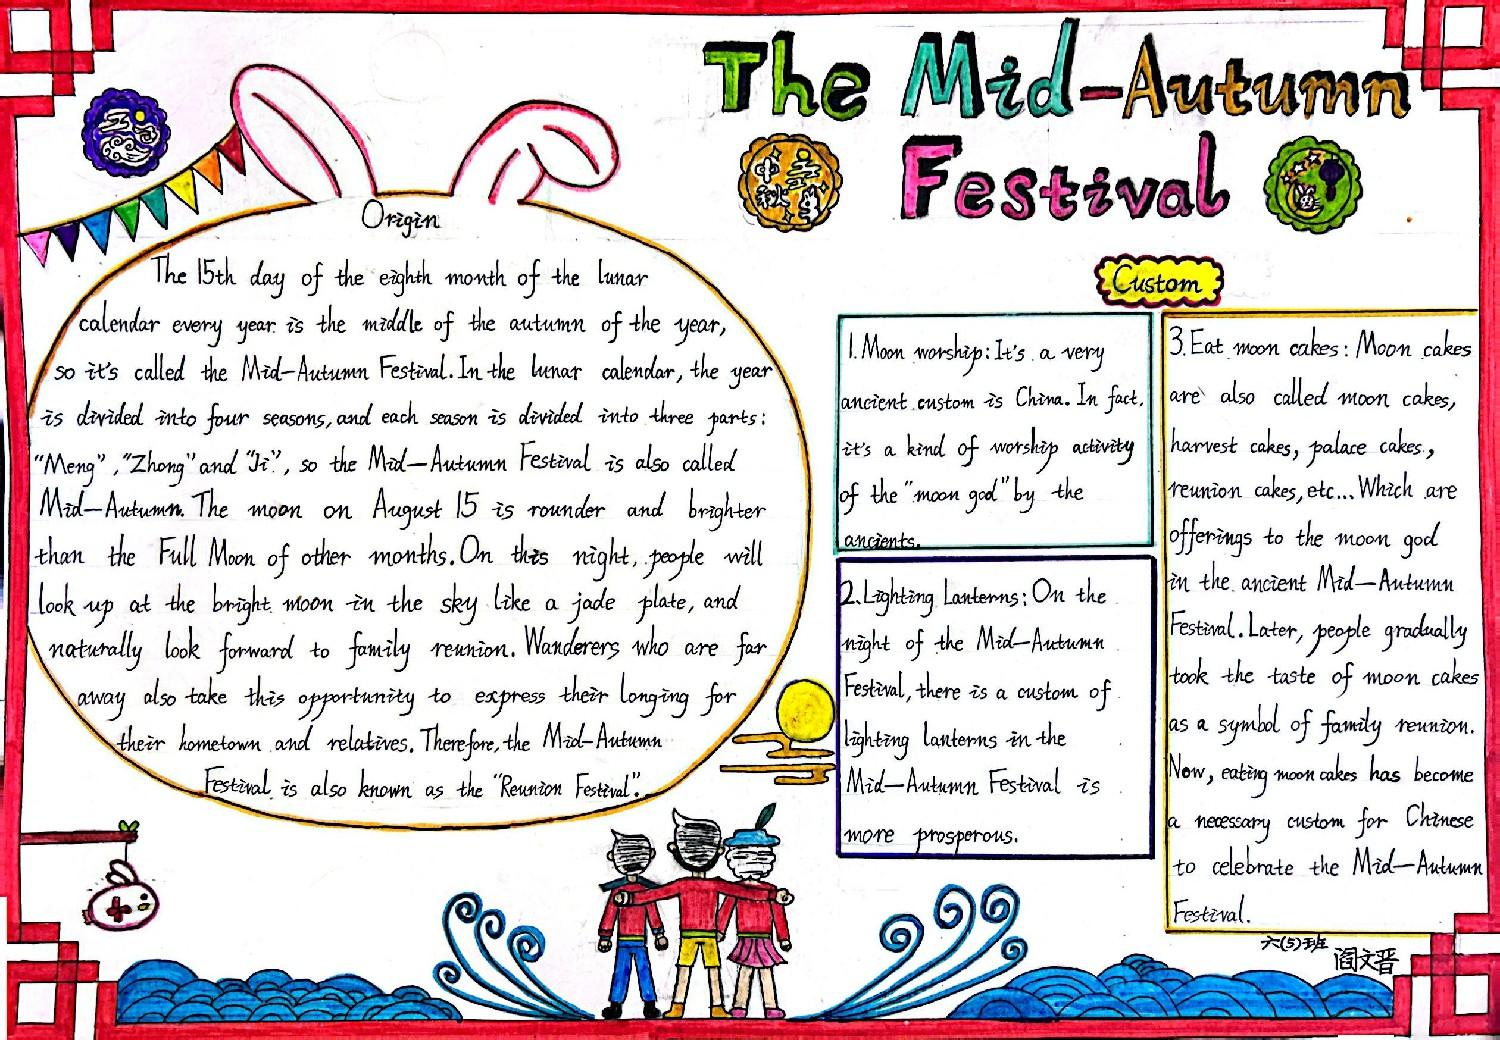 The Mid-Autumn
Festival
中
秋
Origin
The 15th day of the eighth month of the lunar
calendar every year is the middle of the autumn of the year,
so it's called the Mid-Autumn Festival. In the lunar calendar, the year
is divided into four seasons, and each season is divided into three parts:
"Meng", "Zhong" and "Ji", so the Mid-Autumn Festival is also called
Mid-Autumn. The moon on August 15 is rounder and brighter
than the Full Moon of other months. On this night, people will
look up at the bright moon in the sky like a jade plate, and
naturally look forward to family reunion. Wanderers who are far
away also take this opportunity to express their longing for
their hometown and relatives. Therefore, the Mid-Autumn
Festival is also known as the "Reunion Festival".
Custom
1. Moon worship: It's a very
ancient custom is China. In fact,
it's a kind of worship activity
of the "moon god" by the
ancients.
2. Lighting Lanterns: On the
night of the Mid-Autumn
Festival, there is a custom of
lighting lanterns in the
Mid-Autumn Festival is
more prosperous.
3. Eat moon cakes: Moon cakes
are also called moon cakes,
harvest cakes, palace cakes,
reunion cakes, etc... Which are
offerings to the moon god
in the ancient Mid-Autumn
Festival. Later, people gradually
took the taste of moon cakes
as a symbol of family reunion.
Now, eating moon cakes has become
a necessary custom for Chinese
to celebrate the Mid-Autumn
Festival.
六(5)班
阎文晋